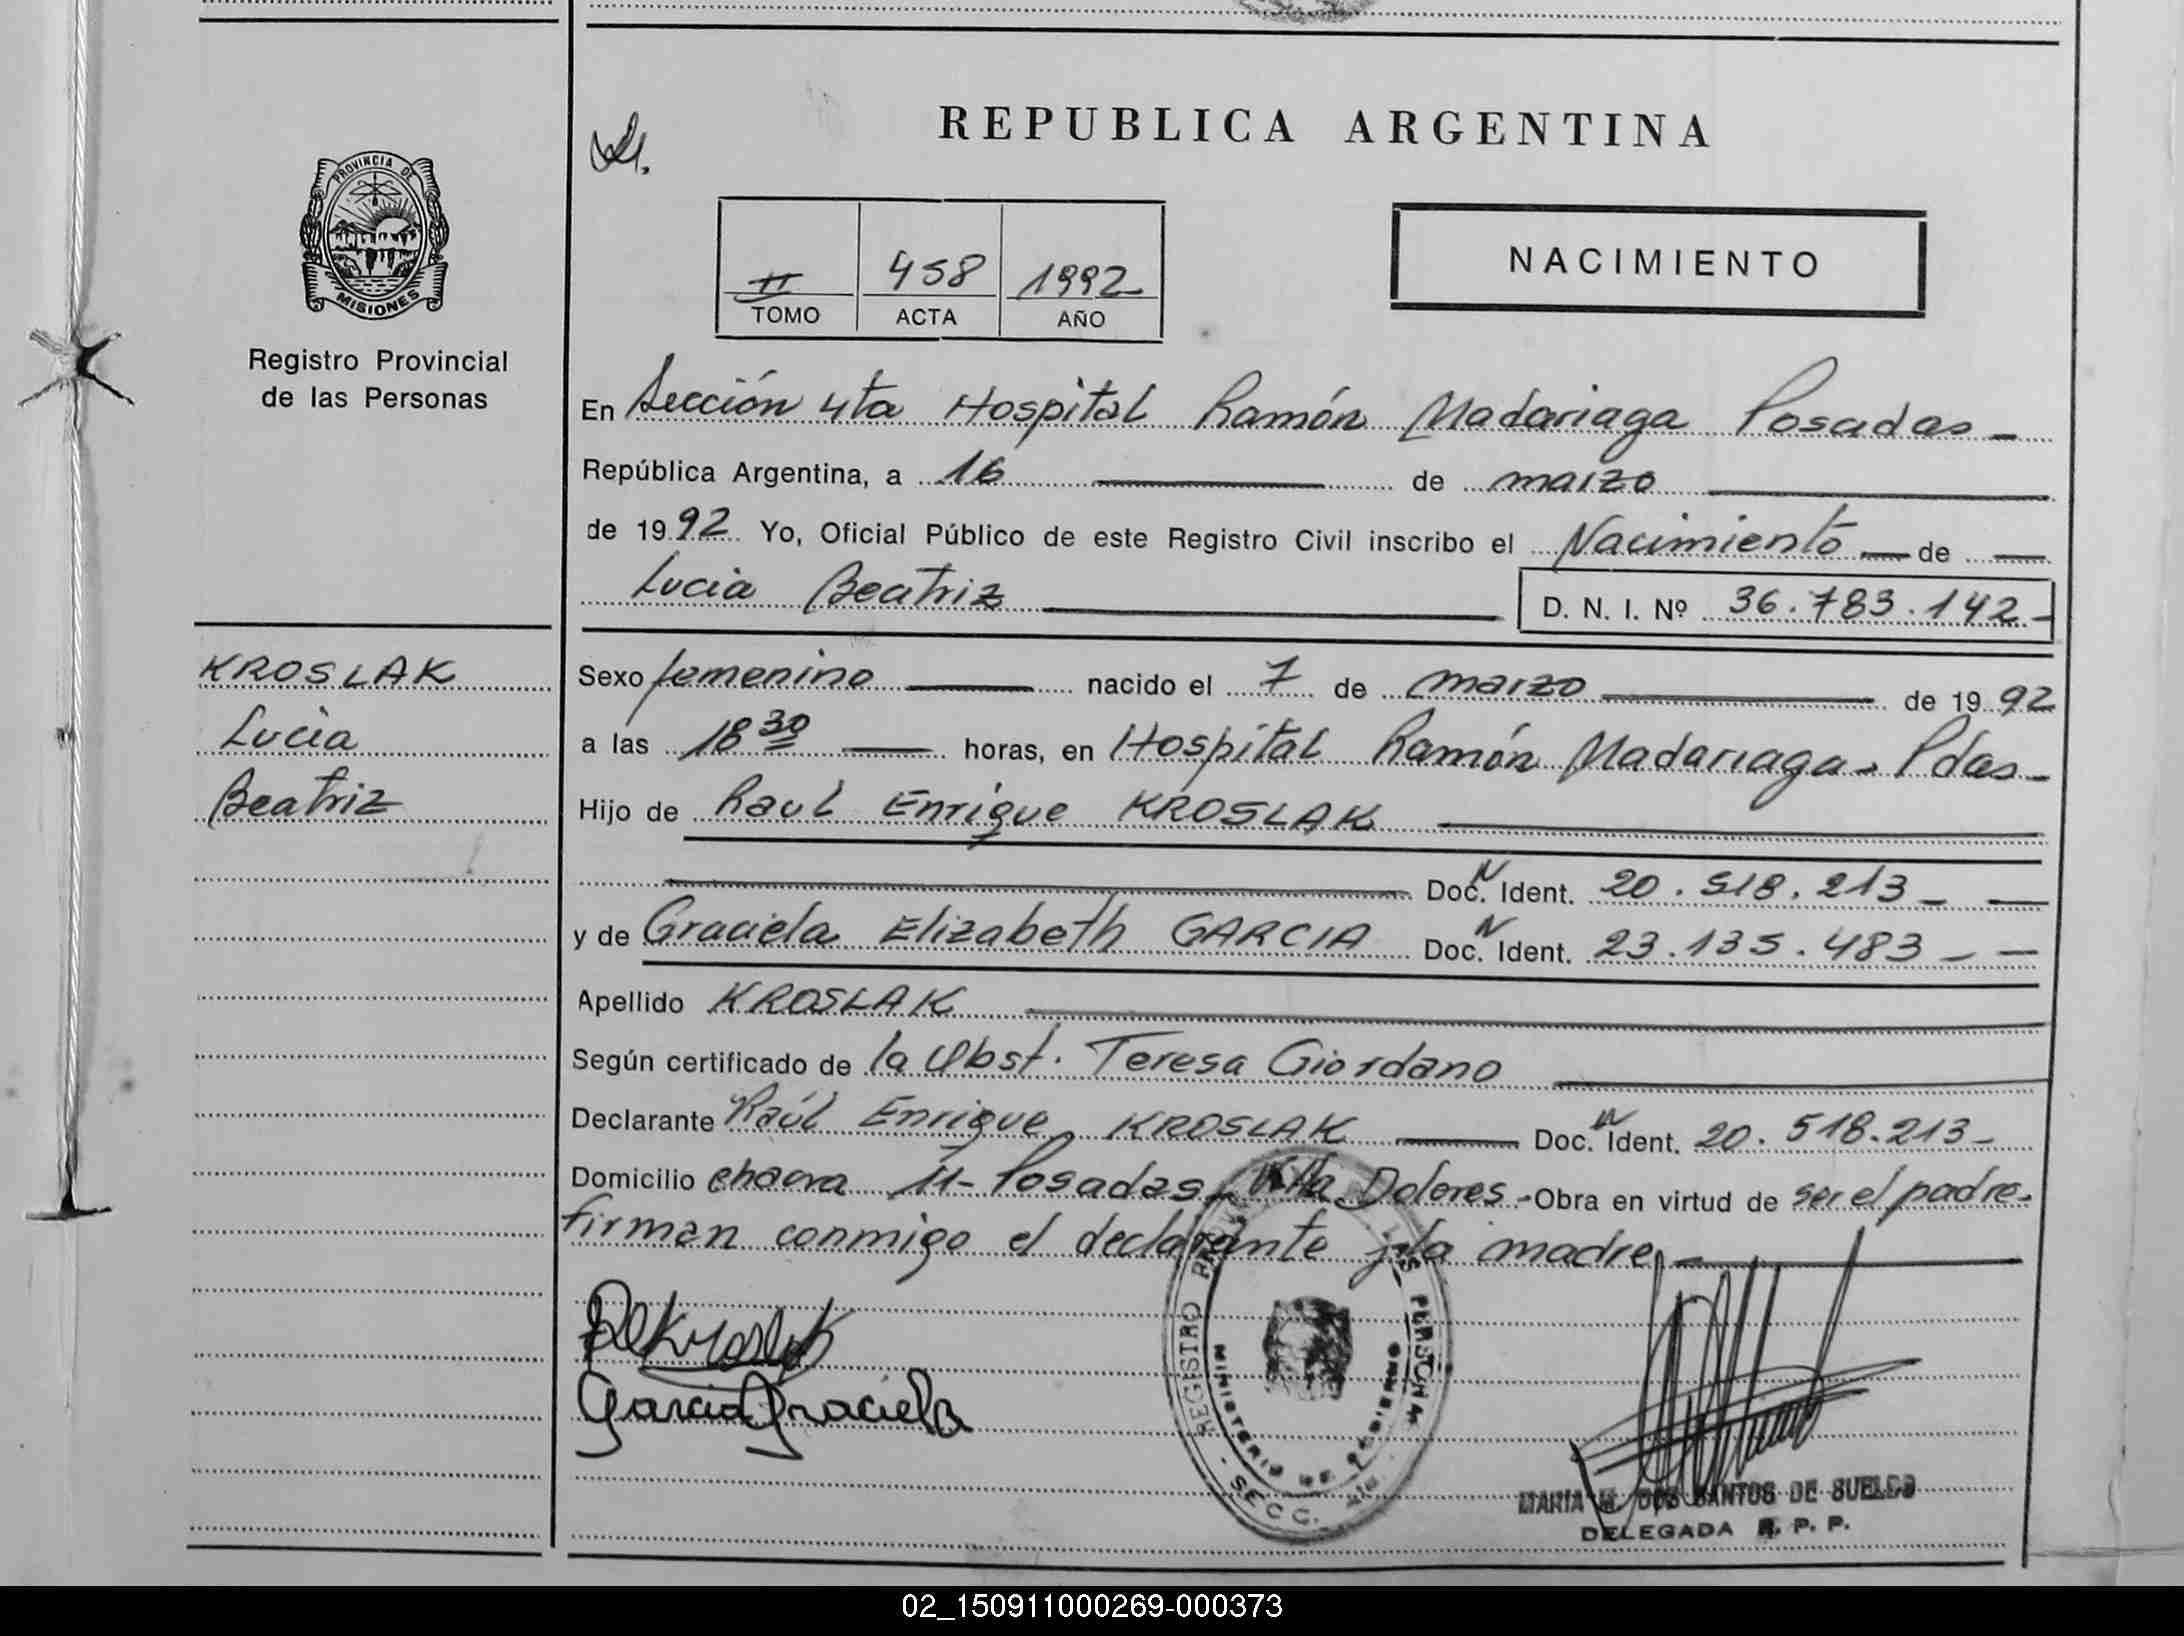 REPUBLICA ARGENTINA
PROVINCIA DE
MISIONES
Registro Provincial
de las Personas
II 458 1992
TOMO ACTA AÑO
NACIMIENTO
En Sección 4ta Hospital Ramón Madariaga Posadas -
República Argentina, a 16 de marzo
de 1992 Yo, Oficial Público de este Registro Civil inscribo el Nacimiento de
Lucia Beatriz D. N. I. Nº 36.783.142-
KROSLAK
Lucia
Beatriz
Sexo femenino nacido el 7 de marzo de 1992
a las 18 30 horas, en Hospital Ramón Madariaga - Pdas -
Hijo de Raul Enrique KROSLAK
Doc. N Ident. 20.518.213 -
y de Graciela Elizabeth GARCIA Doc. N Ident. 23.135.483 -
Apellido KROSLAK
Según certificado de la Obst. Teresa Giordano
Declarante Raúl Enrique KROSLAK Doc. N Ident. 20.518.213-
Domicilio chacra 11- Posadas - Villa Dolores - Obra en virtud de ser el padre.
firman conmigo el declarante y la madre
REKroslak
Garcia Graciela
REGISTRO PROVINCIAL DE LAS PERSONAS
MINISTERIO DE GOBIERNO
SECC. 4ta.
MARIA DOS SANTOS DE SUELDO
DELEGADA R. P. P.
02_150911000269-000373